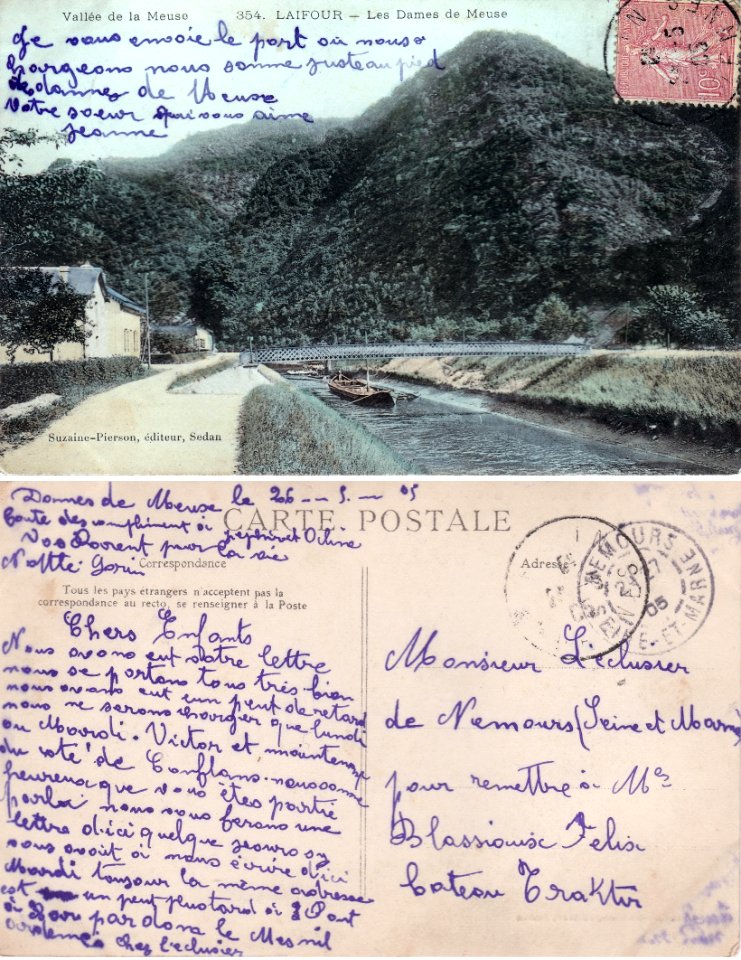 Vallée de la Meuse 354. LAIFOUR — Les Dames de Meuse
Je vous envoie le port où nous
chargeons nous somme juste au pied
de dannes de Meuse
Votre soeur qui vous aime
Jeanne
10c
Suzaine-Pierson, éditeur, Sedan
Dannes de Meuse le 26 — 5 — 05
toute des compliment à
Vos Parent pour la vie
CARTE POSTALE
Correspondance
Adresse
Tous les pays étrangers n'acceptent pas la
correspondance au recto, se renseigner à la Poste
NEMOURS
SEINE-ET-MARNE
05
Chers Enfants
Nous avons eut votre lettre
nous se portons tous très bien
nous avons eut un peut de retard
nous ne serons charger que lundi
ou Mardi. Victor et maintenant
du coté de Conflans. nous somme
heureux que vous êtes partie
parla nous vous ferons une
lettre d'ici quelque jours
vous avoit à nous écrire d'ici
Mardi toujour la même adresse
est un peut plus tard à
par dona le Mesnil
ardennes chez l'eclusier
Monsieur L'eclusier
de Nemours (Seine et Marne)
pour remettre à Mr
Blassiaux Felix
bateau Traktir